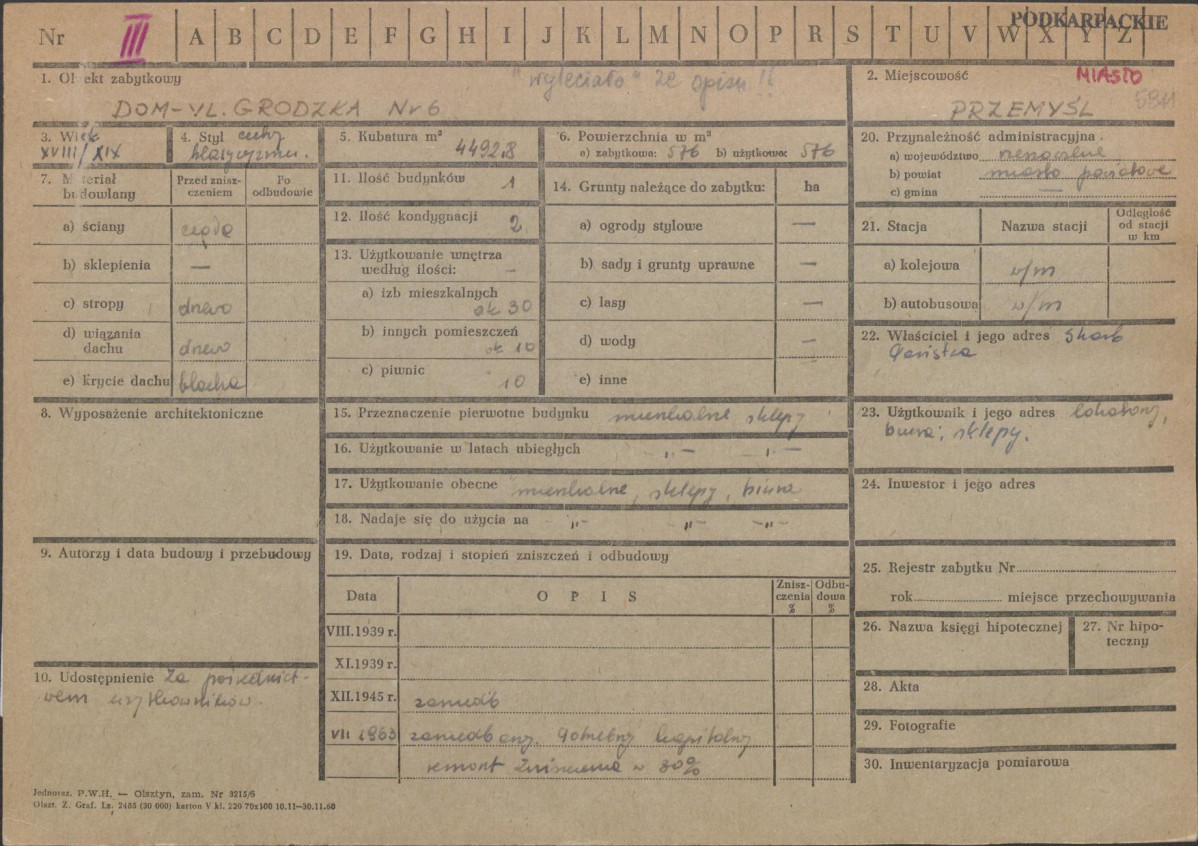 Nr III A B C D E F G H I J K L M N O P R S T U V W X Y Z
PODKARPACKIE
1. Obiekt zabytkowy
"wyleciało" ze opisu !!
DOM - UL. GRODZKA Nr 6
2. Miejscowość
MIASTO
PRZEMYŚL
3. Wiek
XVIII/XIX
4. Styl cechy
klasycyzmu.
5. Kubatura m³
4492,8
6. Powierzchnia w m²
a) zabytkowa: 576 b) użytkowa: 576
7. Materiał budowlany
Przed zniszczeniem
Po odbudowie
a) ściany cegła
b) sklepienia —
c) stropy drewo
d) wiązania dachu drewo
e) krycie dachu blacha
8. Wyposażenie architektoniczne
9. Autorzy i data budowy i przebudowy
10. Udostępnienie Za pośrednict-
wem użytkowników.
11. Ilość budynków 1
12. Ilość kondygnacji 2
13. Użytkowanie wnętrza
według ilości: —
a) izb mieszkalnych
ok 30
b) innych pomieszczeń
ok 10
c) piwnic
10
14. Grunty należące do zabytku: ha
a) ogrody stylowe —
b) sady i grunty uprawne —
c) lasy —
d) wody —
e) inne
15. Przeznaczenie pierwotne budynku mieszkalne sklepy
16. Użytkowanie w latach ubiegłych „— „—
17. Użytkowanie obecne mieszkalne, sklepy, biura
18. Nadaje się do użycia na -„- „ -„-
19. Data, rodzaj i stopień zniszczeń i odbudowy
Data OPIS Zniszczenia % Odbudowa %
VIII.1939 r.
XI.1939 r.
XII.1945 r. zaniedb
VII 1963 zaniedbany. Potrzebny kapitalny
remont Zniszczenia w 30%
20. Przynależność administracyjna
a) województwo rzeszowskie
b) powiat miasto powiatowe
c) gmina —
21. Stacja Nazwa stacji Odległość od stacji w km
a) kolejowa w/m
b) autobusowa w/m
22. Właściciel i jego adres Skarb
Państwa
23. Użytkownik i jego adres lokatorzy,
biura, sklepy.
24. Inwestor i jego adres
25. Rejestr zabytku Nr
rok miejsce przechowywania
26. Nazwa księgi hipotecznej
27. Nr hipo-
teczny
28. Akta
29. Fotografie
30. Inwentaryzacja pomiarowa
Jednoraz. P.W.H. — Olsztyn, zam. Nr 3215/6
Olszt. Z. Graf. Lz. 2485 (30 000) karton V kl. 220 70x100 10.11—30.11.60